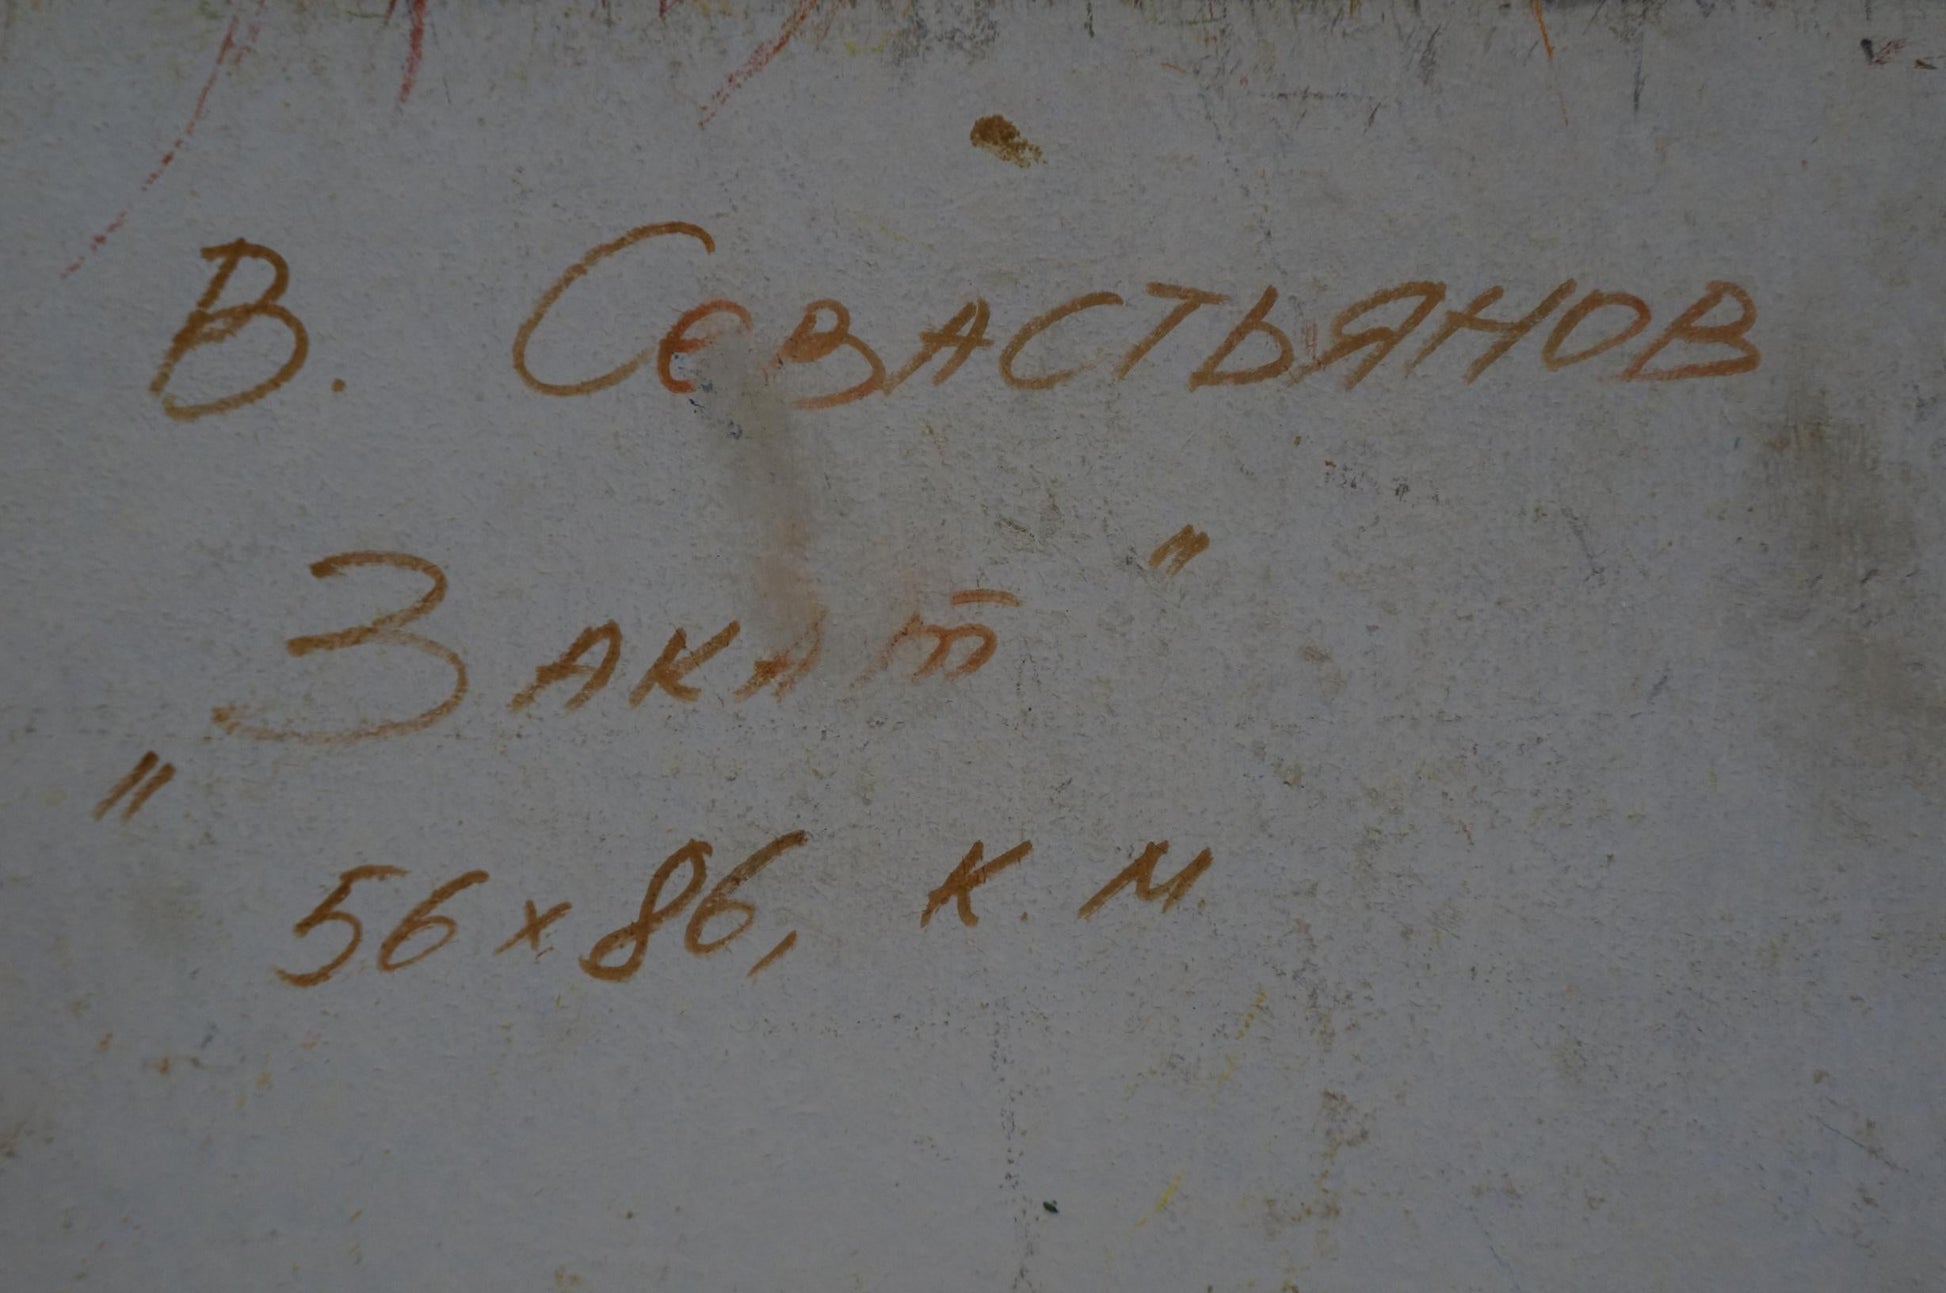 В. Севастьянов
„Закат"
56х86, к. м.